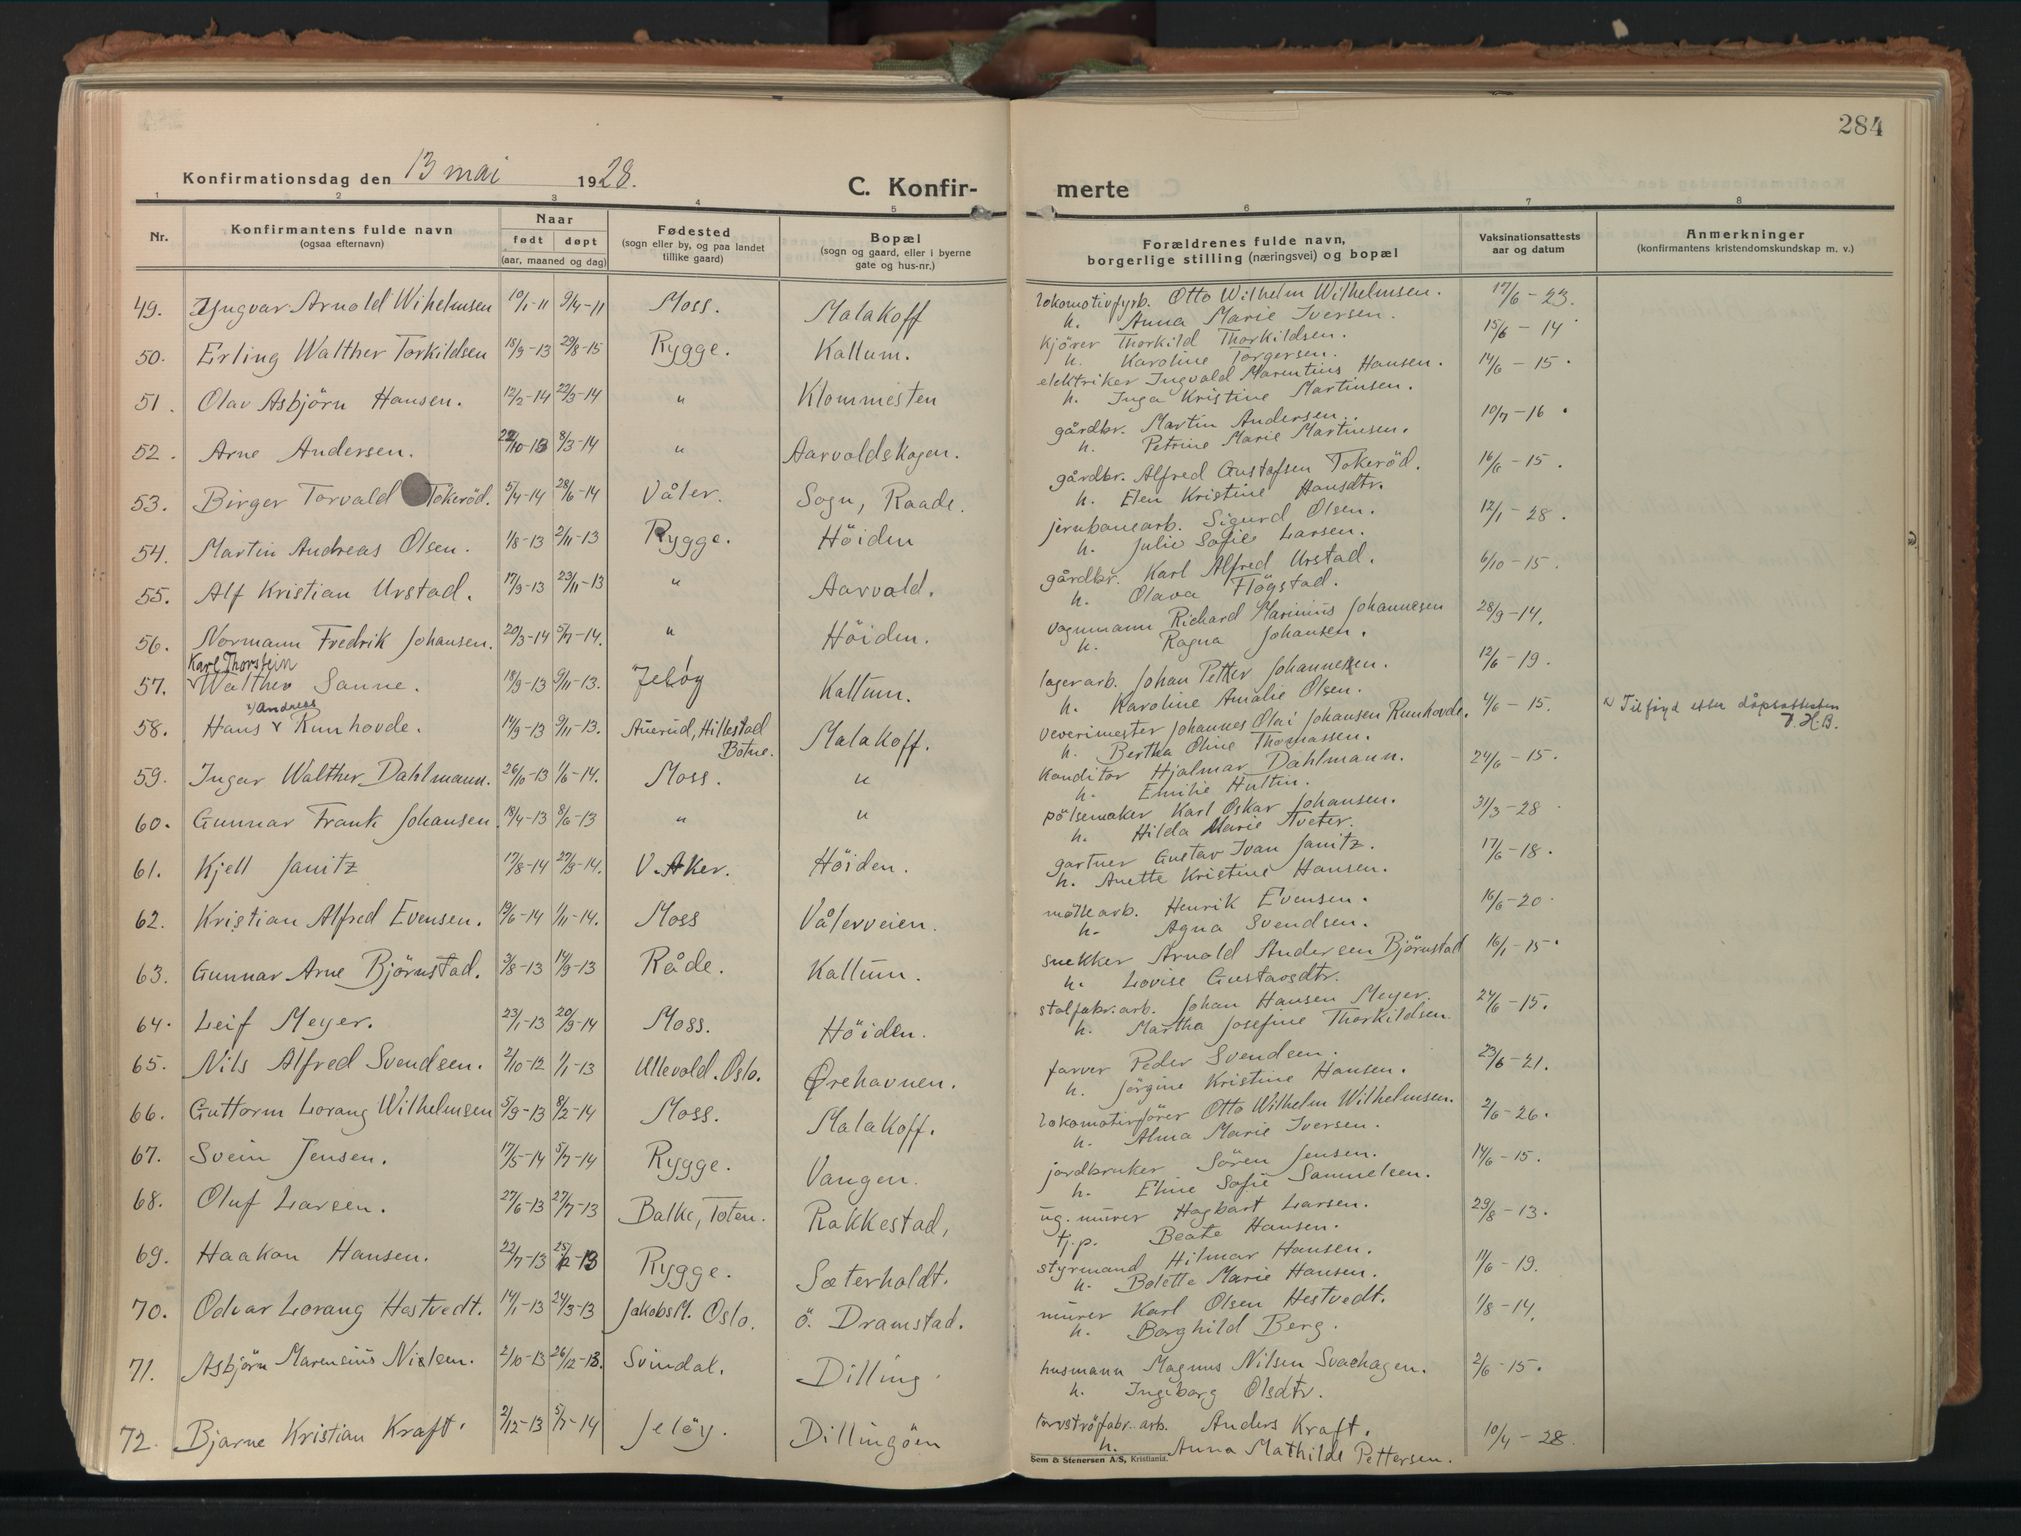 284
Konfirmationsdag den 13 mai 1928.
C. Konfir-merte
1 2 3 4 5 6 7 8
Nr.
Konfirmantens fulde navn
(ogsaa efternavn)
Naar
født døpt
(aar, maaned og dag)
Fødested
(sogn eller by, og paa landet
tillike gaard)
Bopæl
(sogn og gaard, eller i byerne
gate og hus-nr.)
Forældrenes fulde navn,
borgerlige stilling (næringsvei) og bopæl
Vaksinationsattests
aar og datum
Anmerkninger
(konfirmantens kristendomskundskap m. v.)
49. Yngvar Arnold Wihelmsen 10/1-11 9/4-11 Moss. Malakoff lokomotivfyrb. Otto Wilhelm Wilhelmsen. 17/6-23.
h. Anna Marie Iversen.
50. Erling Walther Torkildsen 18/9-13 29/8-15 Rygge. Kallum. kjörer Thorkild Thorkildsen. 15/6-14
h. Karoline Torgersen.
51. Olav Asbjörn Hansen. 12/2-14 22/3-14 " Klommesten elektriker Ingvald Marentius Hansen. 14/6-15.
h. Inga Kristine Martinsen.
52. Arne Andersen. 22/10-13 8/3-14 " Aarvoldskogen. gårdbr. Martin Andersen. 10/7-16.
h. Petrine Marie Martinsen.
53. Birger Torvald Tokeröd. 5/4-14 28/6-14 Våler. Sogn, Raade. gårdbr. Alfred Gustafsen Tokeröd. 16/6-15.
h. Elen Kristine Hansdtr.
54. Martin Andreas Olsen. 1/8-13 2/11-13 Rygge. Höiden jernbanearb. Sigurd Olsen. 12/1-28.
h. Julie Sofie Larsen.
55. Alf Kristian Urstad. 17/9-13 23/11-13 " Aarvold. gårdbr. Karl Alfred Urstad. 6/10-15.
h. Olava Flögstad.
56. Normann Fredrik Johansen. 20/3-14 5/7-14. " Höiden. vognmann Richard Marinius Johannesen 28/9-14.
h. Ragna Johansen.
Karl Thorstein
57. Walther Sanne. 18/9-13 9/11-13. Jeløy Kallum. lagerarb. Johan Petter Johannesen. 12/6-19.
h. Karoline Amalie Olsen.
x) Andreas
58. Hans v Runhovde. 14/9-13 9/11-13. Auerud, Hillestad Botne. Malakoff. veverimester Johannes Olai Johansen Runhovde. 4/6-15. x) Tilføyd etter dåpsattesten
h. Bertha Oline Thomassen. H.B.
59. Ingar Walther Dahlmann. 26/10-13 1/6-14. Moss. " konditor Hjalmar Dahlmann. 24/6-15.
h. Emilie Hultin.
60. Gunnar Frank Johansen. 18/4-13 8/6-13 " " pölsemaker Karl Oskar Johansen. 31/3-28
h. Hilda Marie Tveter.
61. Kjell Janitz 17/8-14 27/9-14. V. Aker. Höiden. gartner Gustav Ivan Janitz. 17/6-18.
h. Anette Kristine Hansen.
62. Kristian Alfred Evensen. 19/6-14 1/11-14. Moss Vålerveien. möllearb. Henrik Evensen. 16/6-20.
h. Agna Svendsen.
63. Gunnar Arne Björnstad. 3/8-13 14/9-13 Råde. Kallum. snekker Arnold Andersen Björnstad 16/1-15.
h. Lovise Gustavsdtr.
64. Leif Meyer. 23/1-13 20/9-14 Moss. Höiden. stolfabr.arb. Johan Hansen Meyer. 24/6-15.
h. Martha Josefine Thorkildsen.
65. Nils Alfred Svendsen. 2/10-12 1/1-13 Ullevold. Oslo. Ørehavnen. farver Peder Svendsen. 23/6-21.
h. Jörgine Kristine Hansen.
66. Guttorm Lorang Wilhelmsen 5/9-13 8/2-14 Moss. Malakoff. lokomotivförer Otto Wilhelm Wilhelmsen. 2/6-26.
h. Alma Marie Iversen.
67. Svein Jensen. 17/5-14 5/7-14 Rygge. Vangen. jordbruker Sören Jensen. 14/6-15.
h. Eline Sofie Samuelsen.
68. Oluf Larsen. 27/6-13 27/7-13 Balke, Toten. Rakkestad, ug. murer Hagbart Larsen. 29/8-13.
tj.p. Beate Hansen.
69. Haakon Hansen. 22/7-13 25/12-13 Rygge. Sæterholdt. styrmand Hilmar Hansen. 11/6-19.
h. Bolette Marie Hansen.
70. Odvar Lorang Hestvedt. 14/1-13 24/3-13 Jakobs M. Oslo. ö. Dramstad. murer Karl Olsen Hestvedt. 1/8-14.
h. Borghild Berg.
71. Asbjörn Marensius Nielsen. 2/10-13 26/12-13. Svindal. Dilling. husmann Magnus Nilsen Svaehagen. 2/6-15.
h. Ingeborg Olsdtr.
72. Bjarne Kristian Kraft. 2/12-13 5/7-14 Jeløy. Dillingöen torvströfabr. arb. Anders Kraft. 10/4-28.
h. Anna Mathilde Pettersen.
Sem & Stenersen A/S, Kristiania.